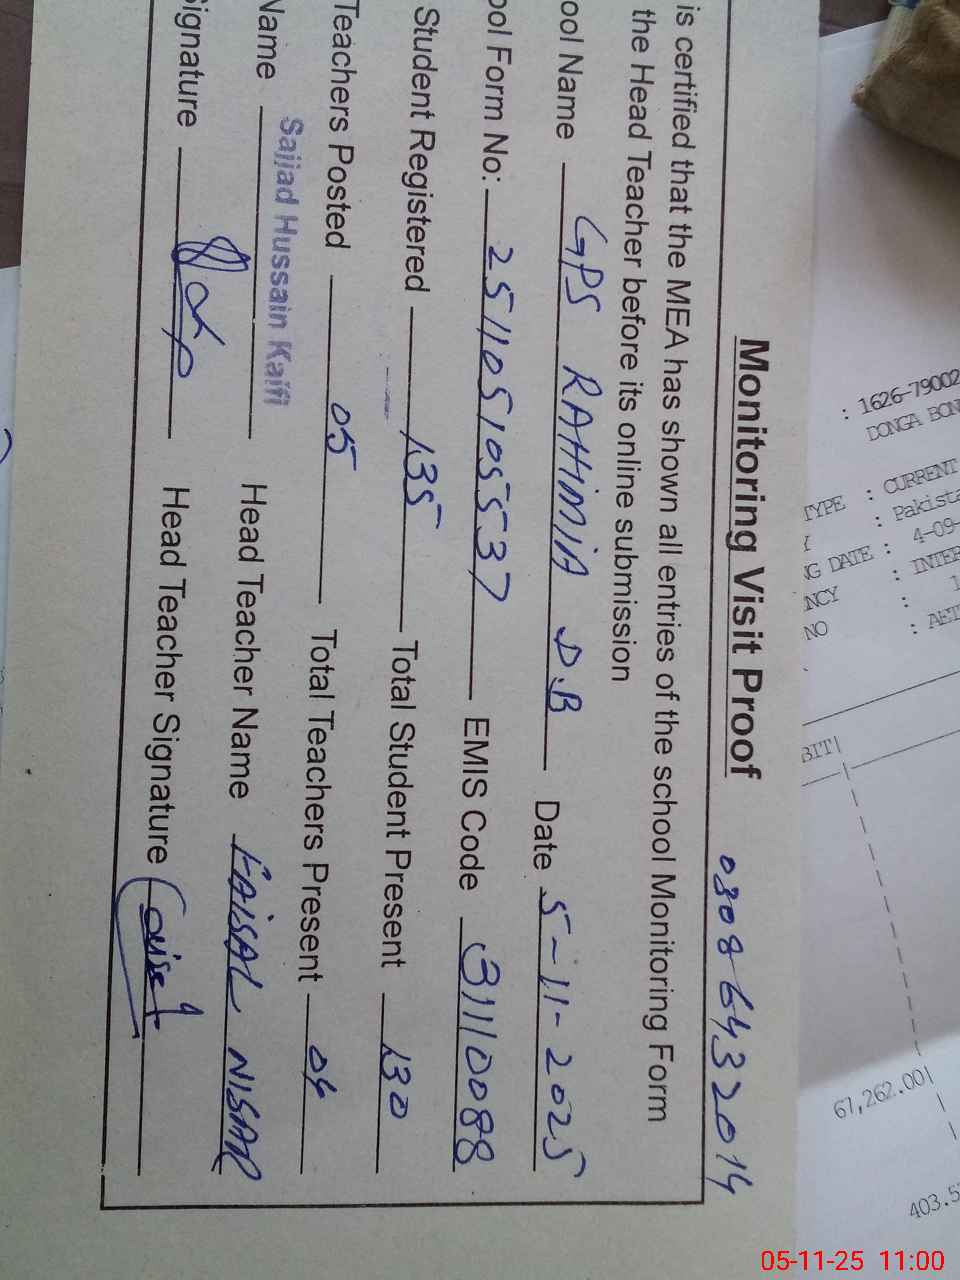 Monitoring Visit Proof 03086432014
is certified that the MEA has shown all entries of the school Monitoring Form
the Head Teacher before its online submission
ool Name GPS RAHIMIA D.B Date 5-11-2025
ool Form No: 251105105537 EMIS Code 31110088
Student Registered 135 Total Student Present 130
Teachers Posted 05 Total Teachers Present 04
Sajjad Hussain Kaifi
Name Head Teacher Name FAISAL NISAR
Signature Head Teacher Signature
: 1626-79002
DONGA BON
TYPE : CURRENT
: Pakista
G DATE : 4-09-
NCY : INTER
NO : AET
BIT|
67,262.00|
403.5
05-11-25 11:00